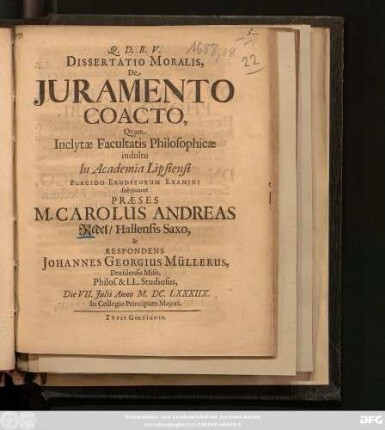 Q. D. B. V.
1688,18
5
22
DISSERTATIO MORALIS,
De
JURAMENTO
COACTO,
Qvam
Inclytæ Facultatis Philosophicæ
indultu
In Academia Lipsiensi
PLACIDO ERUDITORUM EXAMINI
subjiciunt
PRÆSES
M. CAROLUS ANDREAS
Redel/ Hallensis Saxo,
&
RESPONDENS
JOHANNES GEORGIUS MÜLLERUS,
Dresdensis Misn.
Philos. & LL. Studiosus,
Die VII. Julii Anno M. DC. LXXXIIX.
In Collegio Principum Majori.
TYPIS GOEZIANIS.
DFG